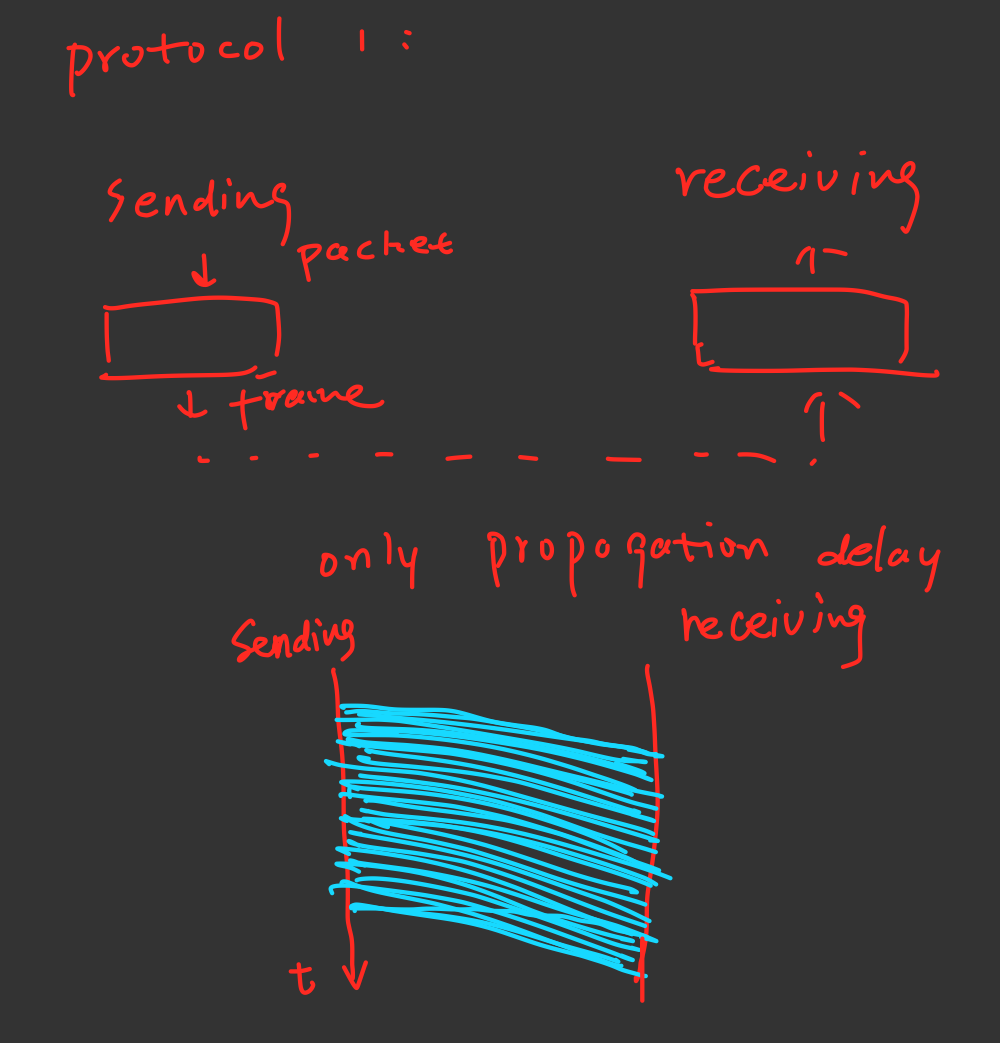 protocol 1:
sending
receiving
packet
frame
only propogation delay
sending
receiving
t